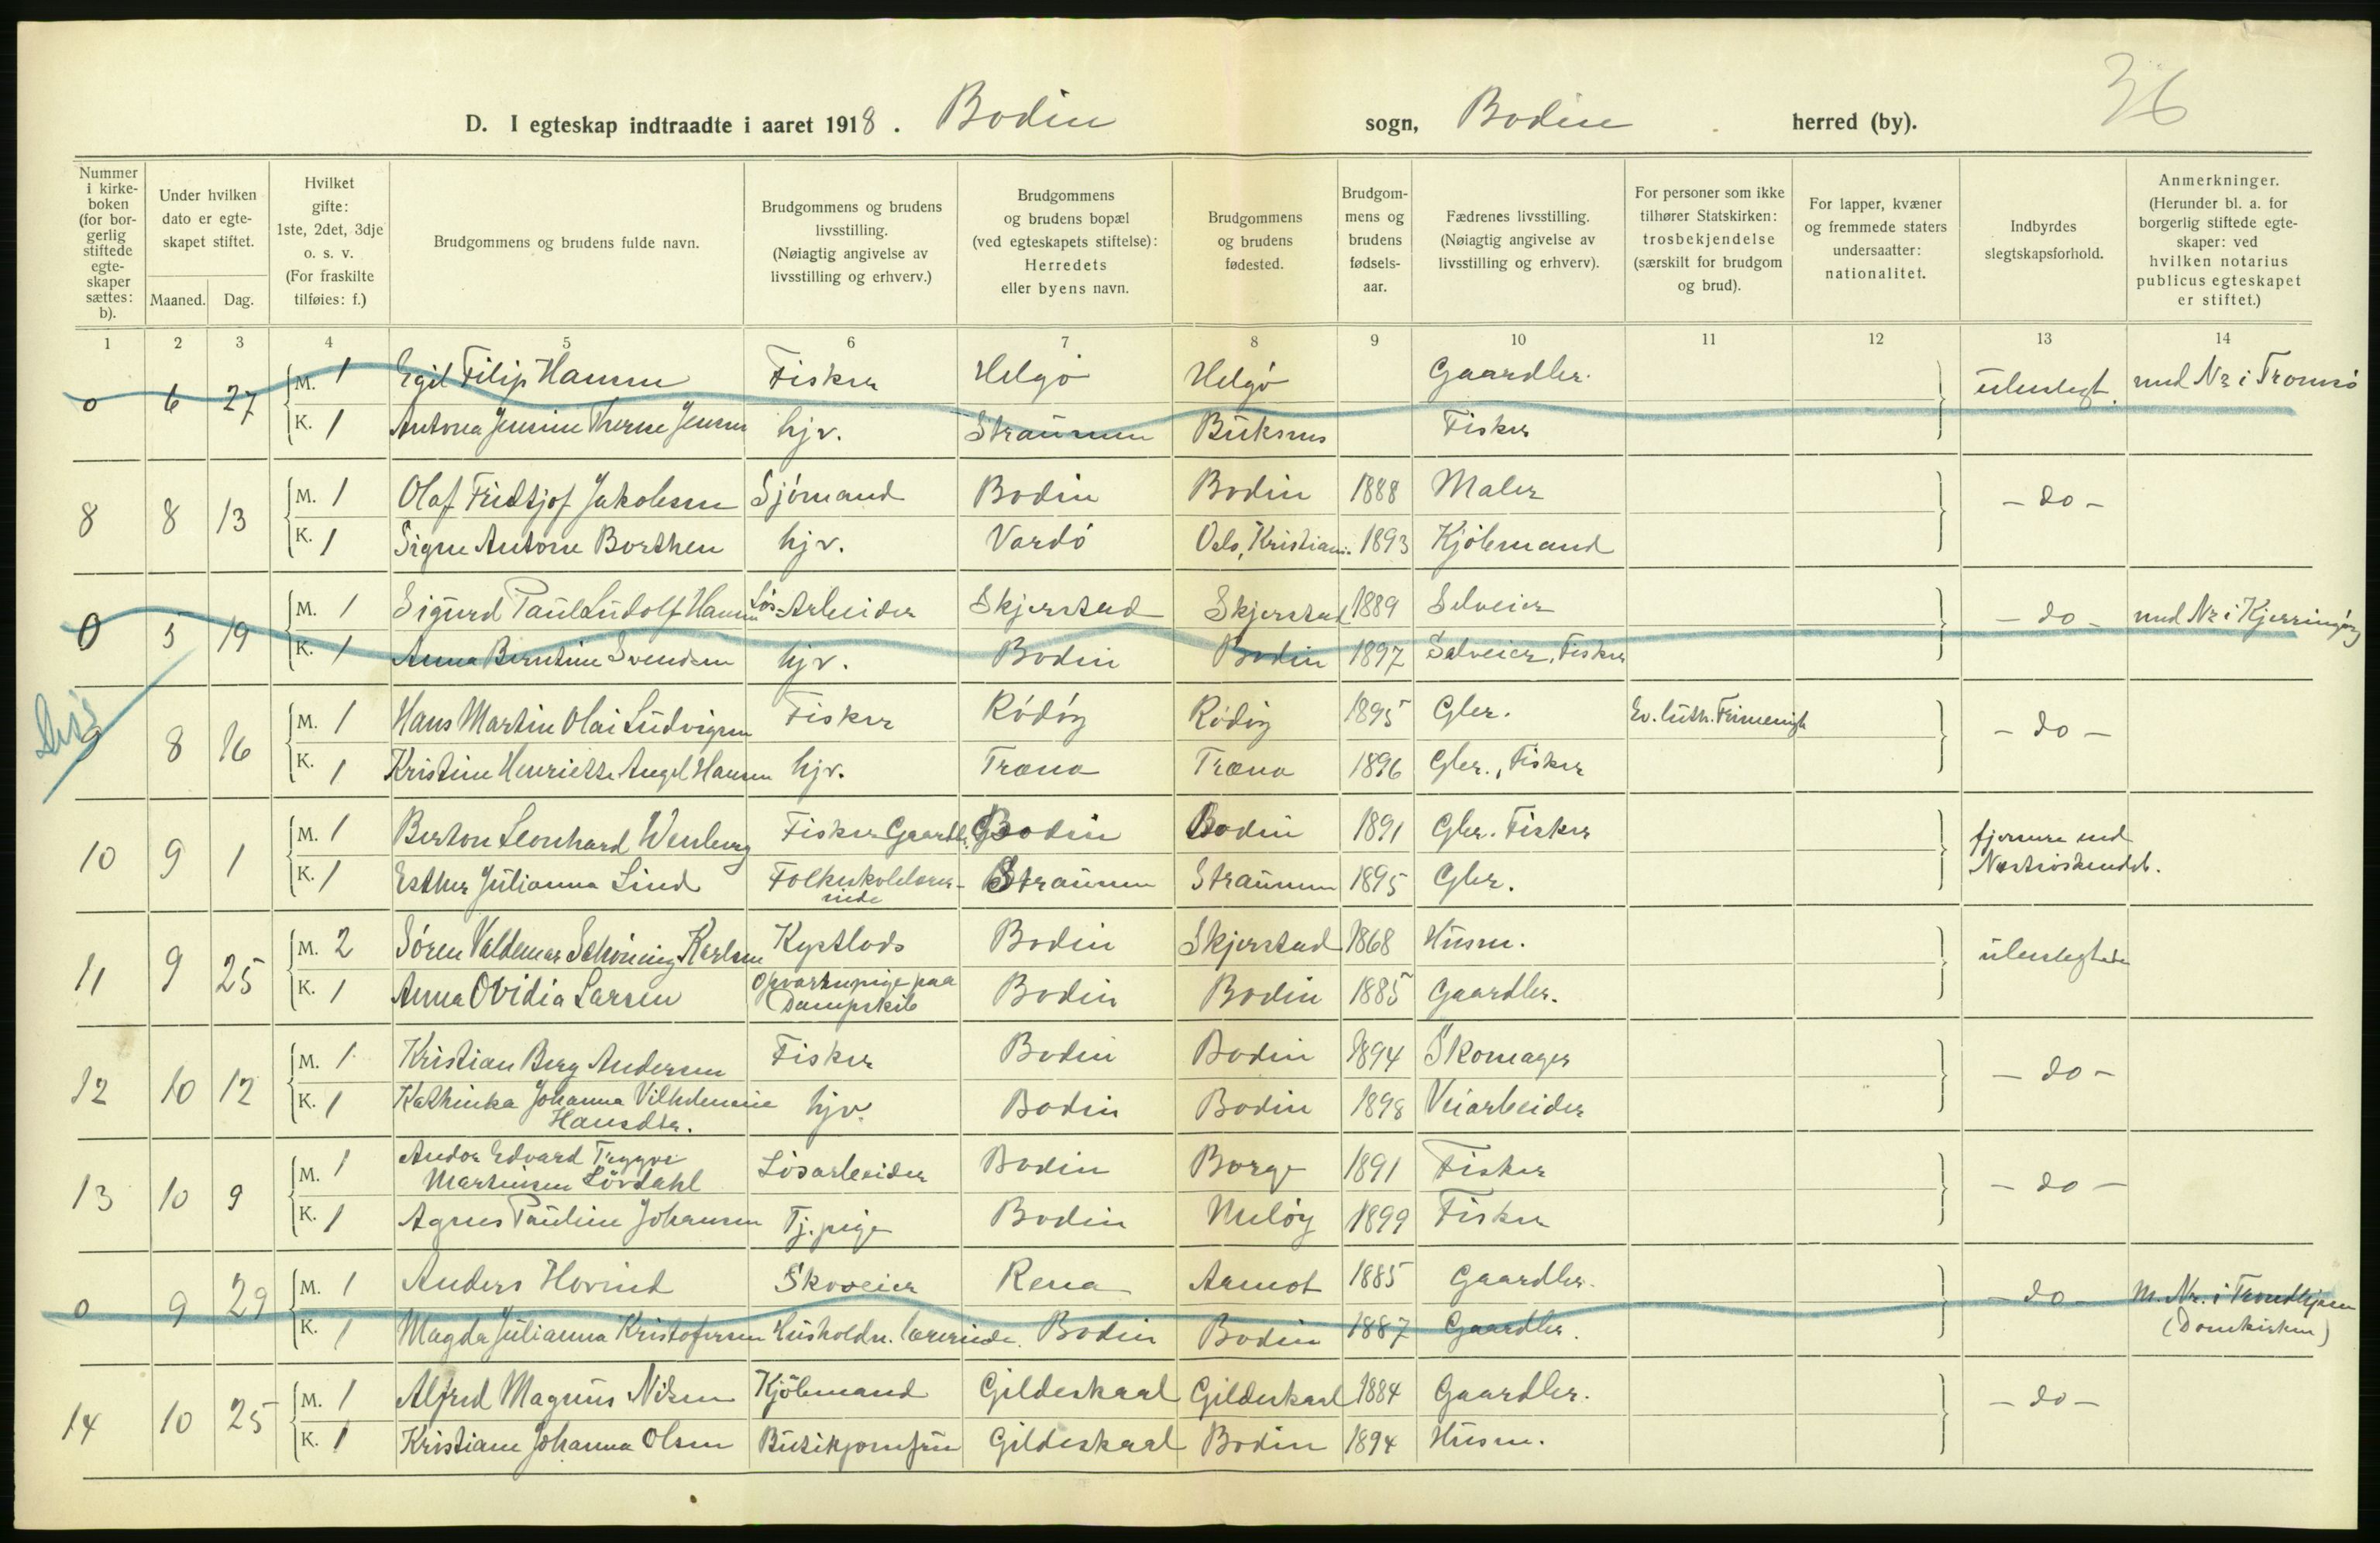 36
D. I egteskap indtraadte i aaret 1918. Bodin sogn, Bodin herred (by).
Nummer i kirkeboken (for borgerlig stiftede egteskaper sættes: b).
Under hvilken dato er egteskapet stiftet.
Maaned. Dag.
Hvilket gifte: 1ste, 2det, 3dje o. s. v. (For fraskilte tilføies: f.)
Brudgommens og brudens fulde navn.
Brudgommens og brudens livsstilling. (Nøiagtig angivelse av livsstilling og erhverv.)
Brudgommens og brudens bopæl (ved egteskapets stiftelse): Herredets eller byens navn.
Brudgommens og brudens fødested.
Brudgommens og brudens fødselsaar.
Fædrenes livsstilling. (Nøiagtig angivelse av livsstilling og erhverv).
For personer som ikke tilhører Statskirken: trosbekjendelse (særskilt for brudgom og brud).
For lapper, kvæner og fremmede staters undersaatter: nationalitet.
Indbyrdes slegtskapsforhold.
Anmerkninger. (Herunder bl. a. for borgerlig stiftede egteskaper: ved hvilken notarius publicus egteskapet er stiftet.)
1 2 3 4 5 6 7 8 9 10 11 12 13 14
0 6 27 M. 1 Egil Filip Hansen Fisker Helgö Helgö Gaardbr. ubeslegt. med Nr i Tromsö
K. 1 Antona Jensine Therese Jensen hjv. Straumen Buksnes Fisker
8 8 13 M. 1 Olaf Fridtjof Jakobsen Sjömand Bodin Bodin 1888 Maler - do -
K. 1 Signe Antone Borthen hjv. Vardö Oslo, Kristiani. 1893 Kjöbmand
0 5 19 M. 1 Sigurd Paul Ludolf Hansen Lös-Arbeider Skjerstad Skjerstad 1889 Selveier - do - med Nr i Kjerringöy
K. 1 Anna Berntine Svendsen hjv. Bodin Bodin 1897 Selveier, Fisker
9 8 16 M. 1 Hans Martin Olai Ludvigsen Fisker Rödöy Rödöy 1895 Gbr. Ev. luth. Frimenigh - do -
K. 1 Kristine Henriette Angel Hansen hjv. Træna Træna 1896 Gbr., Fisker
10 9 1 M. 1 Berton Leonhard Wenberg Fisker Gaardbr. Bodin Bodin 1891 Gbr. Fisker fjernere end
K. 1 Esther Julianna Lind Folkeskolelærerinde Straumen Straumen 1895 Gbr. Næstsöskendeb.
11 9 25 M. 2 Sören Valdemar Schöning Karlsen Kystlods Bodin Skjerstad 1868 Husm. ubeslegtede
K. 1 Anna Ovidia Larsen Opvartepige paa Dampskib Bodin Bodin 1885 Gaardbr.
12 10 12 M. 1 Kristian Berg Andersen Fisker Bodin Bodin 1894 Skomager - do -
K. 1 Kathinka Johanna Vilhelmine Hansdtr. hjv. Bodin Bodin 1898 Veiarbeider
13 10 9 M. 1 Andor Edvard Tryggve Martinsen Lövdahl Lösarbeider Bodin Borge 1891 Fisker - do -
K. 1 Agnes Pauline Johansen Tj. pige Bodin Melöy 1899 Fisker
0 9 29 M. 1 Anders Hovind Skoveier Rena Aamot 1885 Gaardbr. - do - m. Nr. i Trondhjem
K. 1 Magda Julianna Kristofersen Husholdn. lærerinde Bodin Bodin 1887 Gaardbr. (Domkirken)
14 10 25 M. 1 Alfred Magnus Nilsen Kjöbmand Gildeskaal Gildeskaal 1884 Gaardbr. - do -
K. 1 Kristiane Johanna Olsen Butikjomfru Gildeskaal Bodin 1894 Husm.